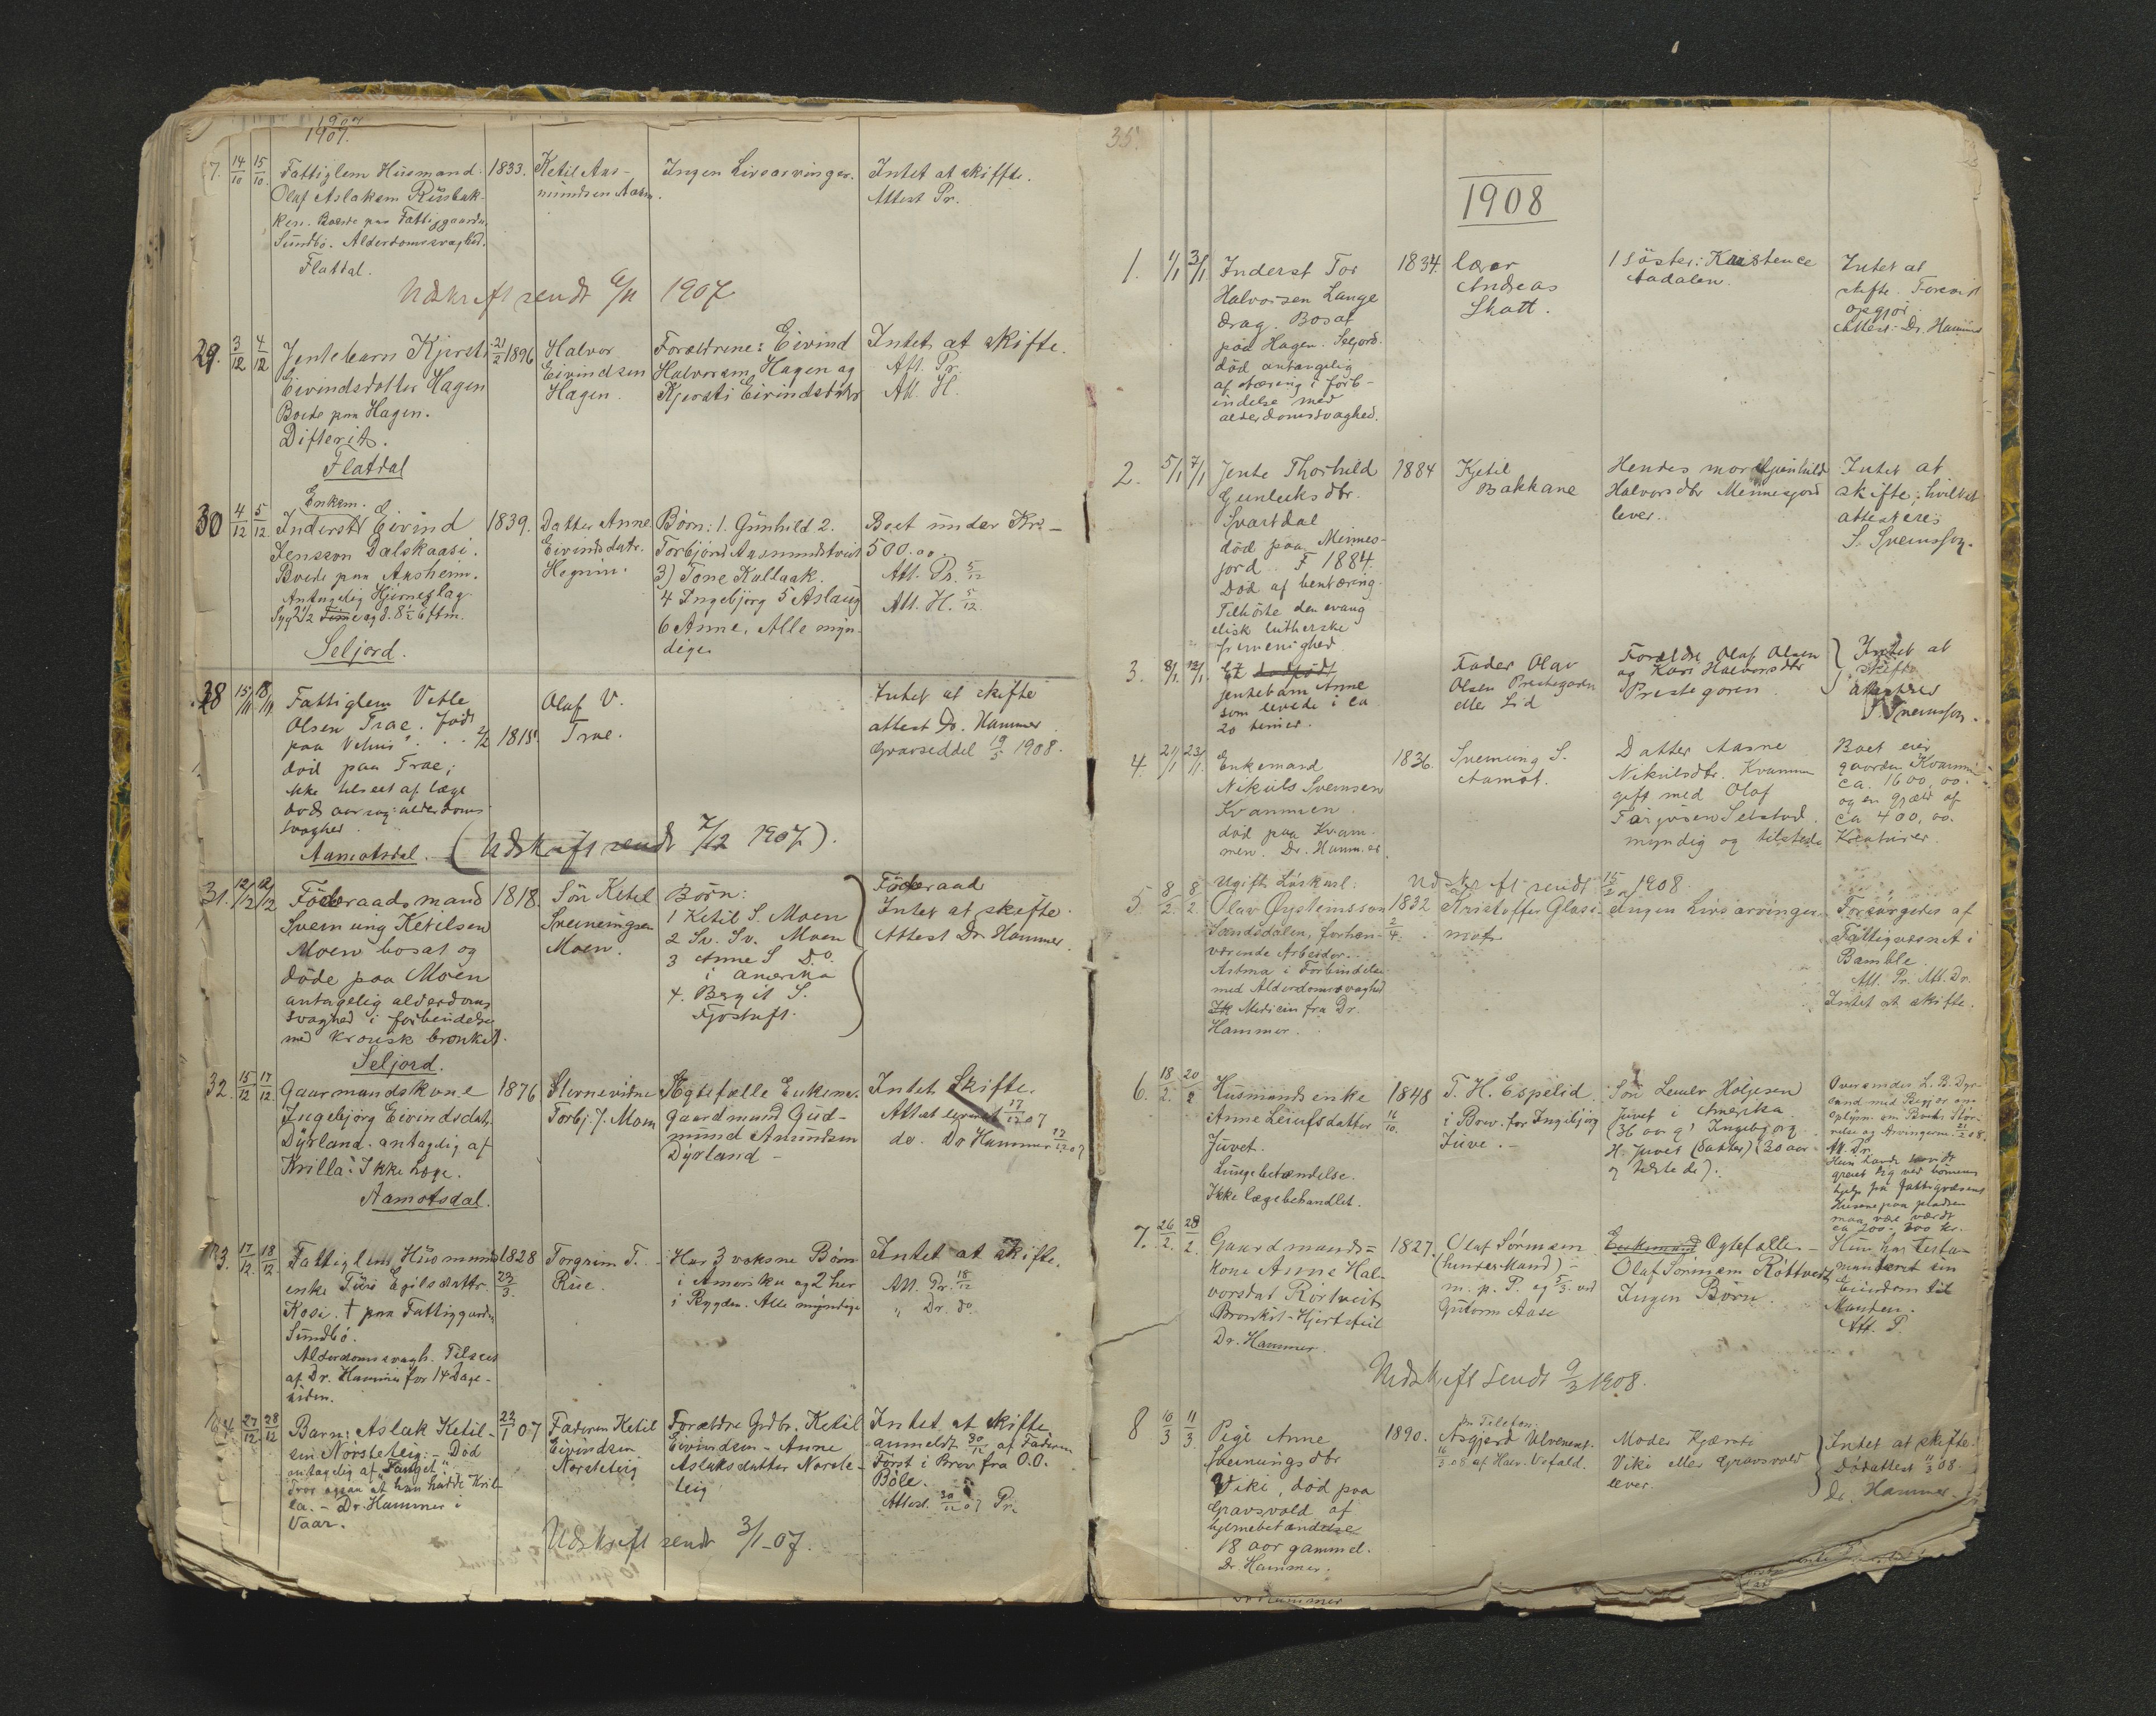 1907
1907.
7. 14/10 15/10 Fattiglem Husmand 1833. Ketil Aas- Ingen Livsarvinger. Intet at skifte.
Olaf Aslaksen Rusbak- mundsen Aasn. Attest Pr.
ken. Boede paa Fattiggaarden
Sundbö. Alderdomssvaghed.
Flatdal.
Udskrift sendt 6/11 1907
29. 3/12 4/12 Jentebarn Kjersti 21/2 1896 Halvor Forældrene: Eivind Intet at skifte.
Eivindsdatter Hagen Eivindsen Halvorsen Hagen og Att. Pr.
Boede paa Hagen. Hagen. Kjersti Eivindsdtr Att. H.
Difterit.
Flatdal
Enkem.
30 4/12 5/12 Inderst Eivind 1839. Datter Anne Börn: 1. Gunhild 2. Boet under Kr. -
Jensson Dalskaasi. Eivindsdatr. Torbjörg Aasmundstveit 500.00.
Boede paa Aasheim. Hegnin. 3) Tone Kullaak. Att. Pr. 5/12
Antagelig Hjerneslag 4 Ingebjörg 5 Aslaug Att. H. 5/12.
Syg 2 1/2 Time og d. 8 1/2 eftm. 6 Anne. Alle myn-
Seljord. dige.
28 15/11 18/11 Fattiglem Vetle Olaf V. Intet at skifte
Olsen Trae. født 2/2 1815. Trae. attest Dr. Hammer
paa Vehus Gravseddel 19/5 1908.
död paa Trae;
ikke tilseet af læge
dods aarsag: alderdoms
svaghed.
Aamotsdal. (Udskrift sendt 7/12 1907).
31. 12/12 12/12 Föderaadsmand 1818. Sön Ketil Börn: Föderaad
Sveinung Ketilsen Sveinungsen 1 Ketil S. Moen Intet at skifte.
Moen bosat og Moen. 2 Sv. Sv. Moen Attest Dr. Hammer.
döde paa Moen 3 Anne S Do.
antagelig alderdoms i Amerika
svaghed i forbindelse 4. Bergit S.
med kronisk bronkit. Fjostuft.
Seljord.
32. 15/12 17/12 Gaarmandskone 1876 Stevnevidne Ægtefælle Enkem. Intet Skifte.
Ingebjörg Eivindsdatr. Torbj. J. Moen Gaardmand Gud- Attest 17/12 07
Dyrland. antagelig af mund Amundsen do. Dr Hammer 17/12 07
Krilla? Ikke Læge. Dyrland -
Aamotsdal.
33. 17/12. 18/12. Fattiglem Husmands 1828 Torgrim T. Har 3 voksne Børn Intet at skifte.
enke Turi Egilsdattr. 23/3. Rue. i Amerika og 2 her Att. Pr. 18/12
Kosi. † paa Fattiggarden i Bygden. Alle myndige „ Dr. do.
Sundbö.
Alderdomssvagh. Tilseet
af Dr. Hammer for 14 Dage
siden.
27/12 28/12 Barn: Aslak Ketil- 22/1 07 Faderen Ketil Forældre Grdbr. Ketil Intet at skifte
sen Nörsteteig. - Död Eivindsen Eivindsen - Anne anmeldt 30/12 af Faderen
antagelig af "Tanget" Norsteteig Aslaksdatter Norste- Först i Brev fra O.O.
Tror ogsaa at han havde Kril- teig Böle.
la. - Dr. Hammer i Attest. 30/12 07 Pr.
Vaar.
Udskrift sendt 3/1-07.
35.
1908
1. 1/1 3/1 Inderst Tor 1834. lærer 1 söster: Kristence Intet at
Halvorsen Lange Andreas Aadalen. skifte. Forevist
drag. Bosat Skatt. opgjør.
paa Hagen. Seljord. Attest. Dr. Hammer
död antagelig
af tæring i forb-
indelse med
alderdomssvaghed.
2. 5/1 7/1 Jente Thorhild 1884 Kjetil Hendes mor Gunhild Intet at
Gunleiksdtr. Bakkane Halvorsdtr Mennesjord skifte; hvilket
Svartdal lever. attesteres
död paa Mennes- S. Sveinsson.
jord. F 1884.
Död af bentæring.
Tilhörte den evang
elisk lutherske
fremenighed
3. 8/1. 12/1. Et dødfødt Fader Olav Foreldre Olaf Olsen Intet at
jentebarn Anne Olsen Prestegaren og Kari Halvorsdtr skifte
som levede i ca eller Lid Prestegaren attesteres
20 timer. S. Sveinsson.
4. 21/1 23/1. Enkemand 1836. Sveinung S. Datter Aasne Boet eier
Nikuls Sveinsen Aamot. Nikulsdtr. Kvammen gaarden Kvammen
Kvammen. gift med Olaf ca. 1600,00.
død paa Kvam- Tarjusen Selstad. og en gjæld af
men. Dr. Hammer. myndig og tilstede ca 400,00.
Kreaturer.
Ugift Löskarl. Udskrift sendt 15/2 1908.
5. 8/2. 8/2. Olav Øysteinsson 1832 Kristoffer Glasi- Ingen Livsarvinger. Forsörgedes af
Sandsdalen, forhen- 2/4. mot. Fattigvæsnet i
værende Arbeider. Bamble.
Astma i Forbindelse Att. Pr. Att. Dr.
med Alderdomssvaghed Intet at skifte.
Medicin fra Dr.
Hammer.
6. 18/2. 20/2 Husmandsenke 1848 T. H. Espelid Sön Leiulv Holjesen Oversendes L. B. Dyr-
Anne Leiulfsdatter 16/10. i Brev. for Ingebjörg Juvet i Amerika land med Begjær om
Juvet. Juve. - (36 aar g) Ingebjörg Oplysn. om Boets Stör-
Lungebetændelse. H. Juvet (datter) (30 aar relse og Arvingerne. 21/2 08.
Ikke lægebehandlet. og tilstede). Att. Dr.
Hun havde
greiet sig ved börnenes
hjelp fra fattigvæsenet
Husene paa pladsen
maa være værdt
ca 200-300 kr.
7. 26/2. 28/2. Gaardmands= 1827. Olaf Sörensen Enkemand Ægtefælle. - Hun har testa-
kone Anne Hal- (hendes Mand) - Olaf Sörensen Röttveit menteret sin
vorsdat Rörtveit m. p. P. og 5/3. ved Ingen Börn. Eiendom til
Bronkit-Hjertefeil Gutorm Aase Manden.
Dr. Hammer. Att. P.
Udskrift sendt 9/3 1908.
8 10/3 11/3 Pige Anne 1890. pr Telefon: Moder Kjersti Intet at skifte.
Sveinungsdtr Asgjerd Ulvenes. Viki eller Gravsvold Dödsattest 11/3 08.
Viki, død paa 16/3 08 af Halv. Vefald. lever. Dr. Hammer.
Gravsvold af
hjernebetændelse
18 aar gammel.
Dr Hammer.
Dr Hammer